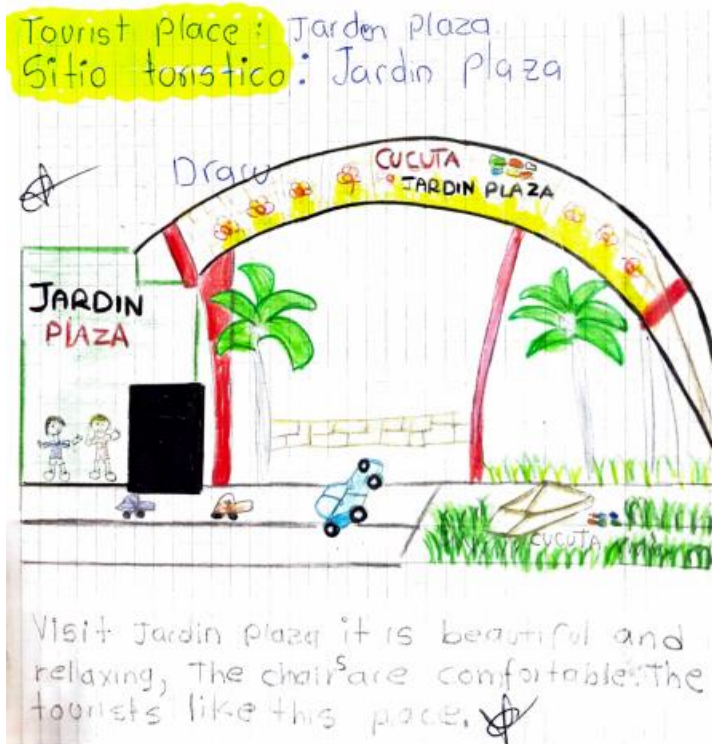 Tourist Place: Jarden Plaza.
Sitio toristico: Jardin Plaza
Draw
CUCUTA
JARDIN PLAZA
JARDIN
PLAZA
CUCUTA
Visit Jardin plaza it is beautiful and
rellaxing, The chairs are comfortable. The
tourists like this pace.